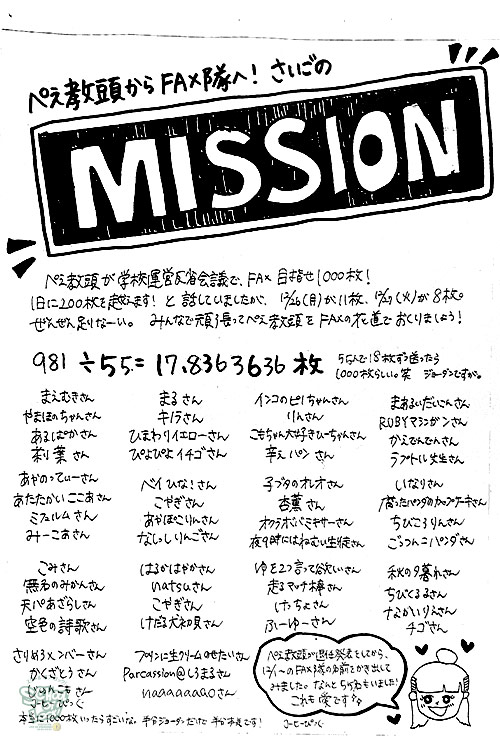 ぺえ教頭からFAX隊へ！さいごの
MISSION
ぺえ教頭が学校運営反省会議で、FAX目指せ1000枚！
1日に200枚を越えます！と話していましたが、12/16(月)が11枚、12/17(火)が8枚。
ぜんぜん足りなーい。みんなで頑張ってぺえ教頭をFAXの花道でおくりましょう！
981÷55=17.8363636枚
55人で18枚ずつ送ったら
1000枚らしい。笑 ジョーダンですが。
まえむきさん
やまほのちゃんさん
あるぱかさん
莉葉さん
あやのってぃーさん
あたたかいここあさん
ミフェルムさん
みーこあさん
ごみさん
無名のみかんさん
天パあざらしさん
空色の詩歌さん
さりめろ×ンバーさん
かくざとうさん
まるさん
キノラさん
ひまわりイエローさん
ぴよぴよイチゴさん
ベイひな！さん
こやぎさん
あやぽこりんさん
なしりんごさん
はるかはやかさん
natsuさん
こやぎさん
けだる犬初見さん
プリンに生クリームのせたいさん
Parcassion@しろまるさん
naaaaaaaoさん
インコのピーちゃんさん
りんさん
こもちゃん大好きひーちゃんさん
辛えパンさん
子ブタのオレオさん
杏薫さん
オカラボバミキサーさん
夜9時にはねむい生徒さん
ゆを2つ言って欲しいさん
走るマッチ棒さん
けっちょさん
ふーゆーさん
まあるいだいこんさん
RUBYマシンガンさん
かえでんでんさん
ラプトル先生さん
いなりさん
腐ったパンダのカップケーキさん
ちびころりんさん
ごっつんこパンダさん
秋の夕暮れさん
ちびてるるさん
ながいりえさん
チゴさん
ぺえ教頭が退任発表をしてから、
12/1〜のFAX隊の名前をかき出して
みました。なんと55名もいました！
これも愛ですな
ジーピっぐ
本当に1000枚いったらすごいな。半分ジョーダンだけど半分本気です！ ジーピっぐ